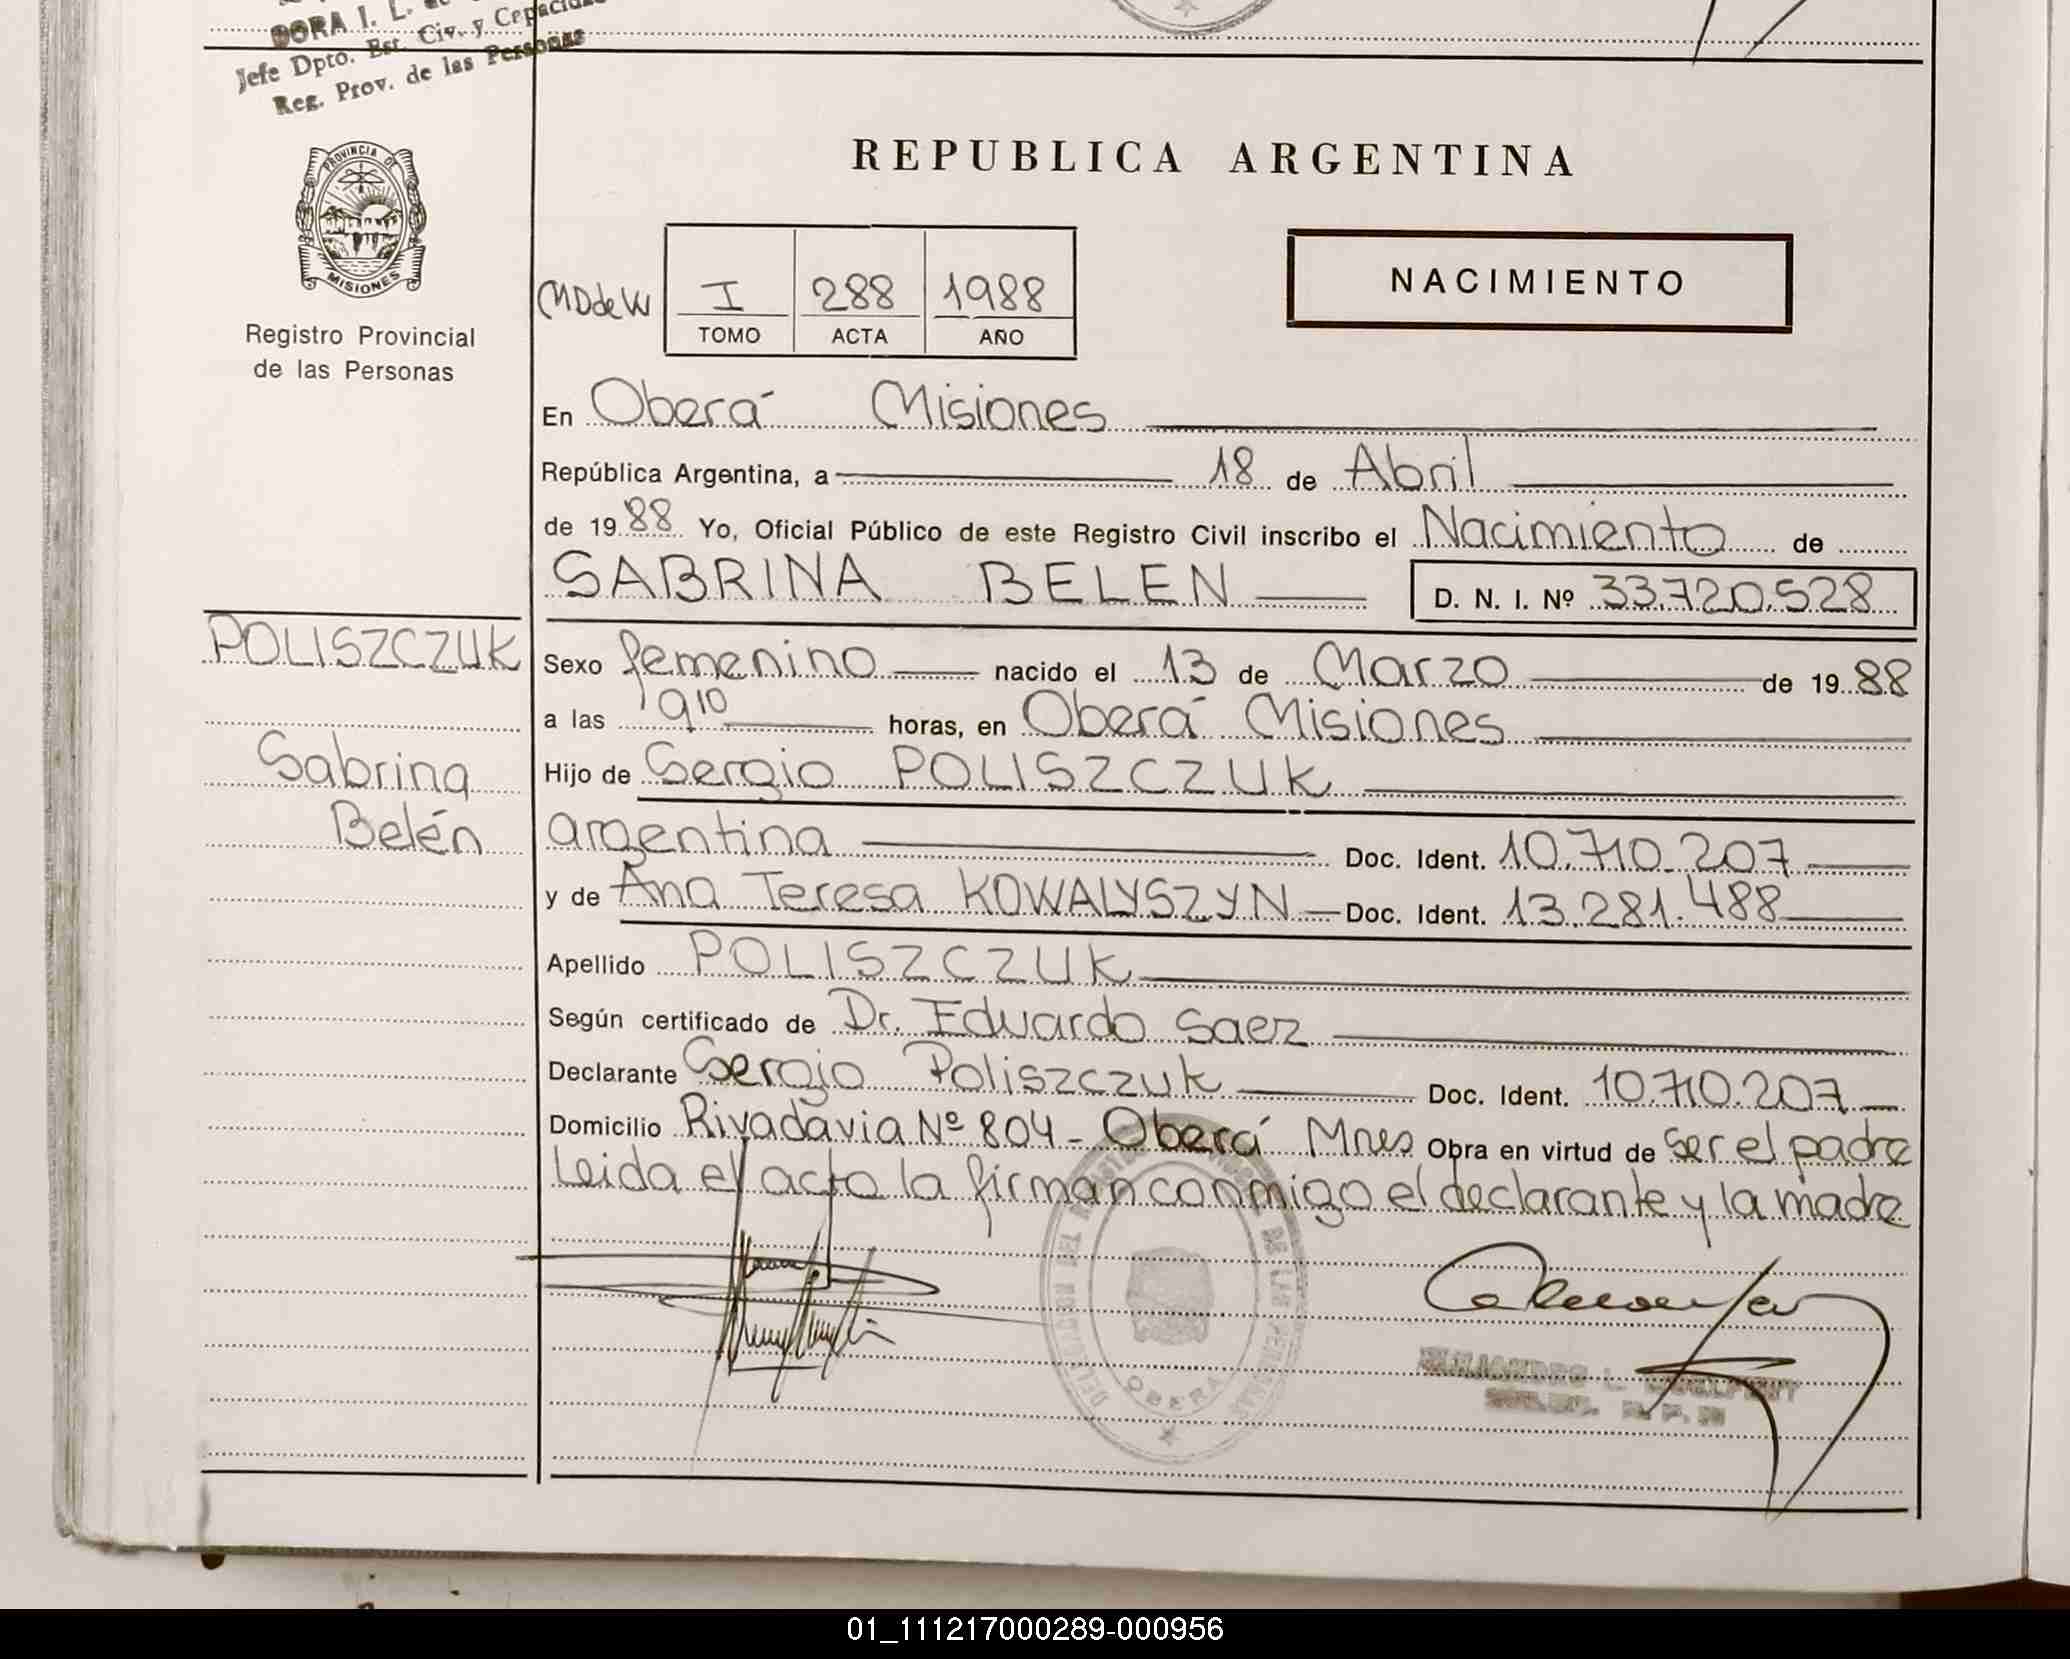 DORA I. L.
Jefe Dpto. Est. Civ. y Capacidad
Reg. Prov. de las Personas
PROVINCIA DE
MISIONES
Registro Provincial
de las Personas
REPUBLICA ARGENTINA
NACIMIENTO
I 288 1988
TOMO ACTA AÑO
En Oberá Misiones
República Argentina, a 18 de Abril
de 1988 Yo, Oficial Público de este Registro Civil inscribo el Nacimiento de
SABRINA BELEN D. N. I. Nº 33.720.528
POLISZCZUK
Sabrina
Belén
Sexo femenino nacido el 13 de Marzo de 1988
a las 1910 horas, en Oberá Misiones
Hijo de Sergio POLISZCZUK
argentina Doc. Ident. 10.710.207
y de Ana Teresa KOWALYSZYN Doc. Ident. 13.281.488
Apellido POLISZCZUK
Según certificado de Dr. Eduardo Saez
Declarante Sergio Poliszczuk Doc. Ident. 10.710.207
Domicilio Rivadavia Nº 804 - Oberá Mnes Obra en virtud de ser el padre
Leida el acto la firman conmigo el declarante y la madre
DE LAS PERSONAS
OBERA
01_111217000289-000956